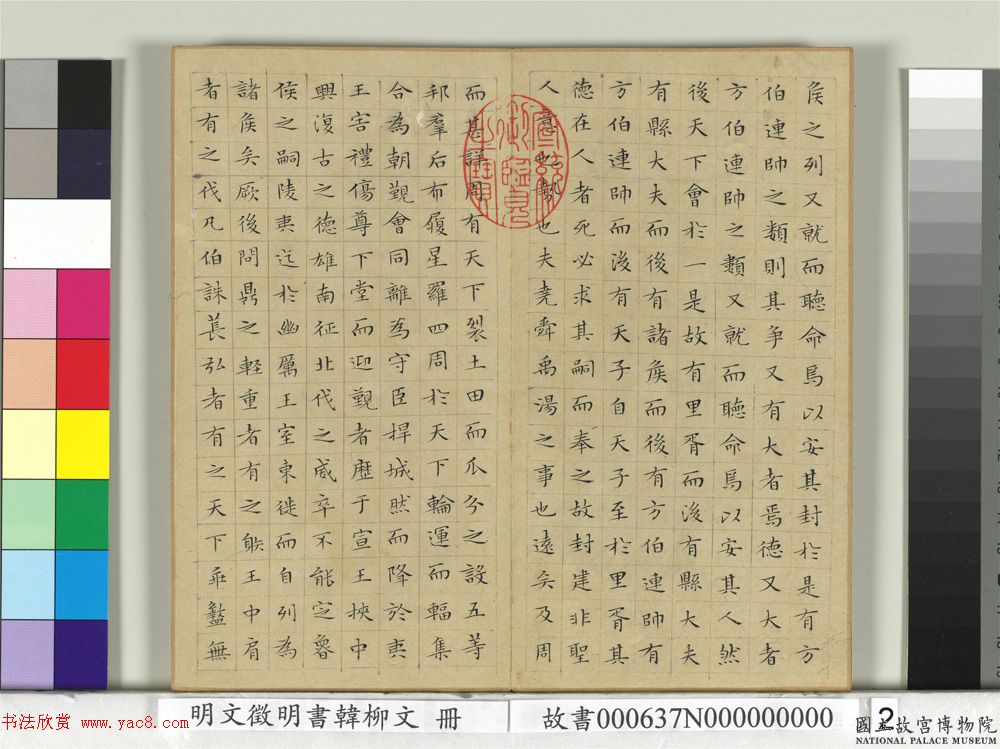 侯之列又就而聽命焉以安其封於是有方
伯連帥之類則其爭又有大者焉德又大者
方伯連帥之類又就而聽命焉以安其人然
後天下會於一是故有里胥而後有縣大夫
有縣大夫而後有諸侯而後有方伯連帥有
方伯連帥而後有天子自天子至於里胥其
德在人者死必求其嗣而奉之故封建非聖
人意也勢也夫堯舜禹湯之事也遠矣及周
而甚詳周有天下裂土田而瓜分之設五等
邦羣后布履星羅四周於天下輪運而輻集
合為朝覲會同離為守臣捍城然而降於夷
王害禮傷尊下堂而迎覲者歷于宣王挾中
興復古之德雄南征北伐之威卒不能定魯
侯之嗣陵夷迄於幽厲王室東徙而自列為
諸侯矣厥後問鼎之輕重者有之䠶王中肩
者有之伐凡伯誅萇弘者有之天下乖盭無
明文徵明書韓柳文 冊
故書000637N000000000
2
书法欣赏 www.yac8.com
國立故宮博物院
NATIONAL PALACE MUSEUM